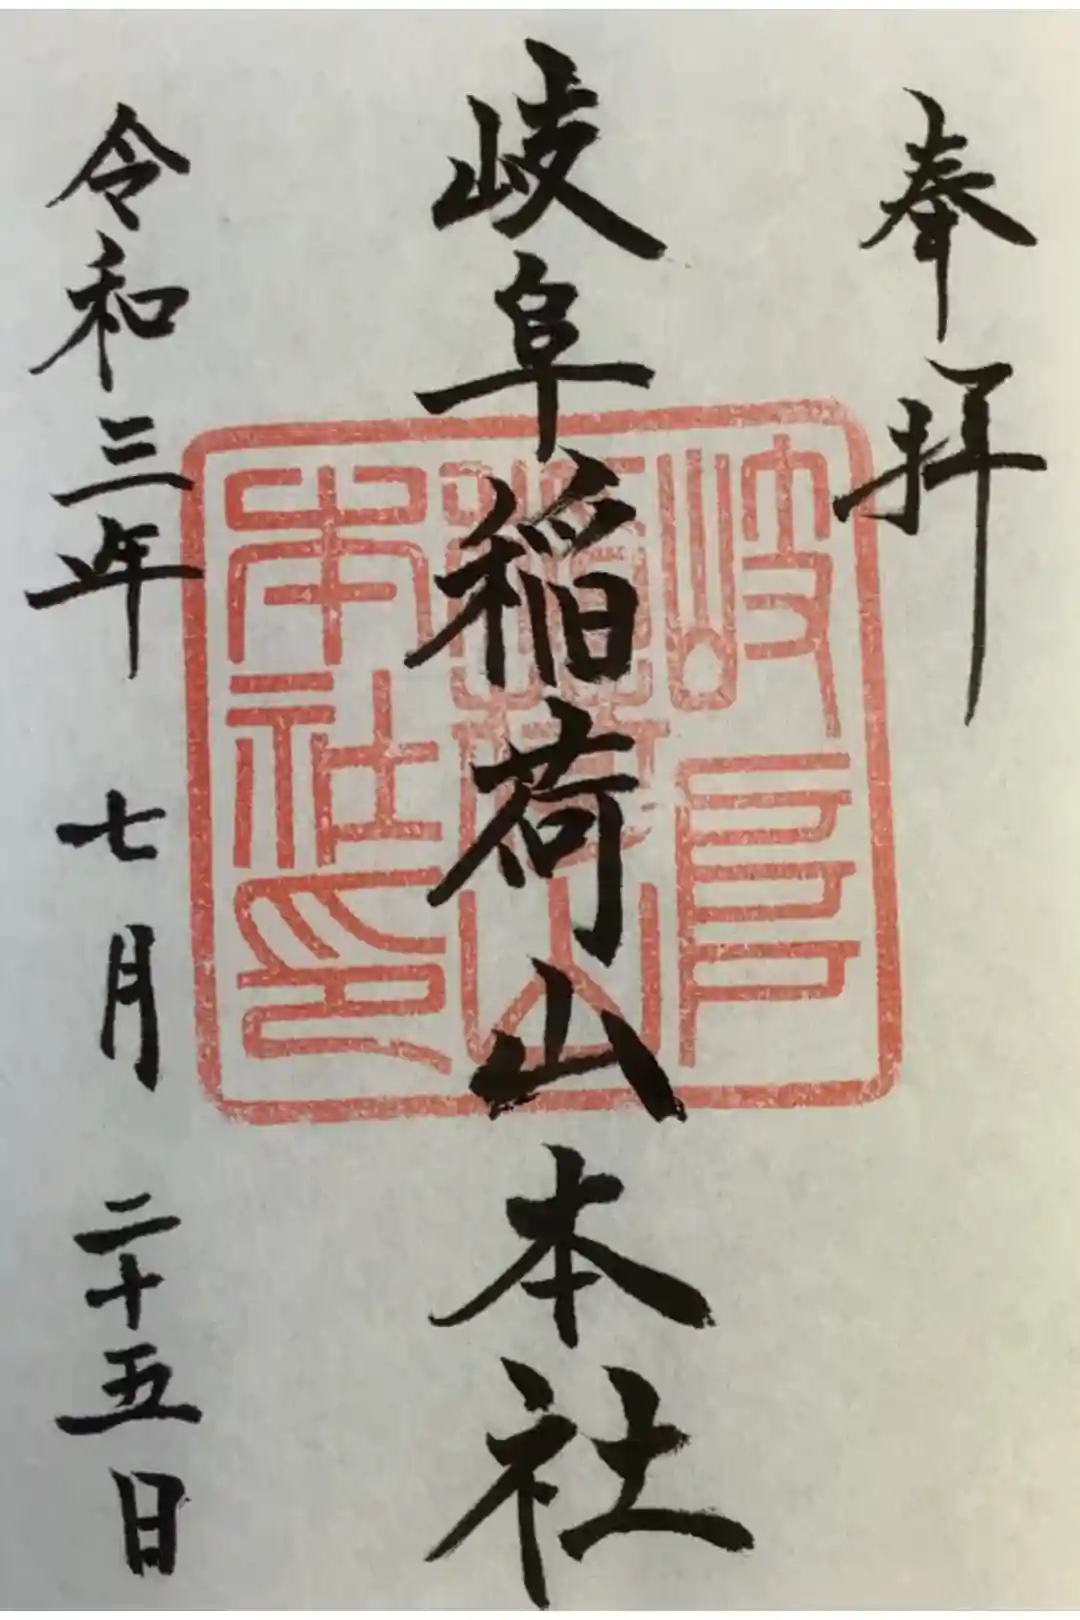 奉拝
岐阜稲荷山本社
岐阜稲荷山本社印
令和三年 七月 二十五日